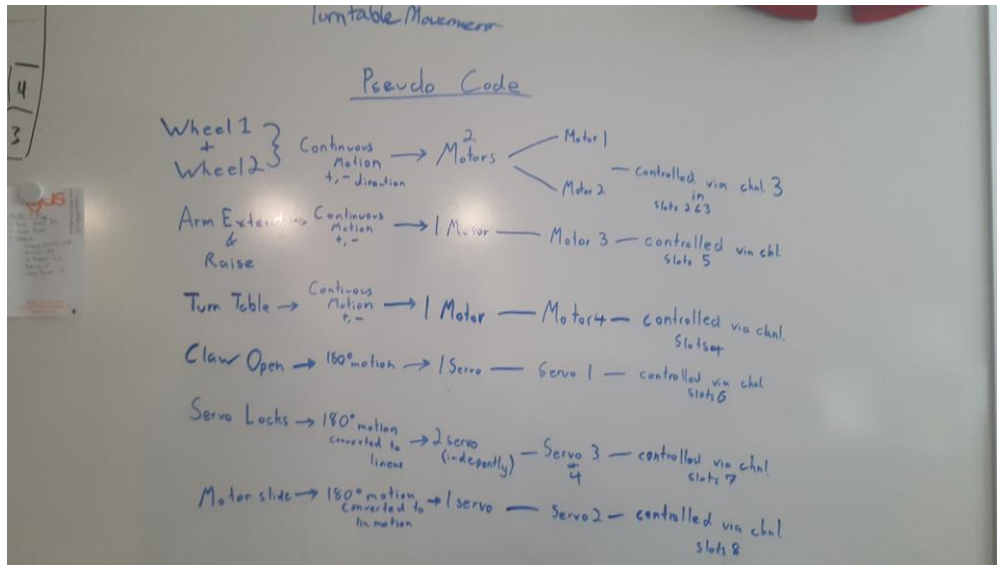 Turntable Movement
Pseudo Code
4
3
Wheel 1 + Wheel 2 } Continuous Motion +, - direction → 2 Motors Motor 1 Motor 2 — controlled via chnl. 3 in slots 2&3
Arm Extend & Raise → Continuous Motion +, - → 1 Motor — Motor 3 — controlled via chl. slots 5
Turn Table → Continous Motion +, - → 1 Motor — Motor 4 — controlled via chnl. slots 4
Claw Open → 180° motion → 1 Servo — Servo 1 — controlled via chnl slots 6
Servo Locks → 180° motion converted to linear → 2 servo (indepently) — Servo 3 + 4 — controlled via chnl. slots 7
Motor slide → 180° motion converted to lin motion → 1 servo — Servo 2 — controlled via chnl slots 8